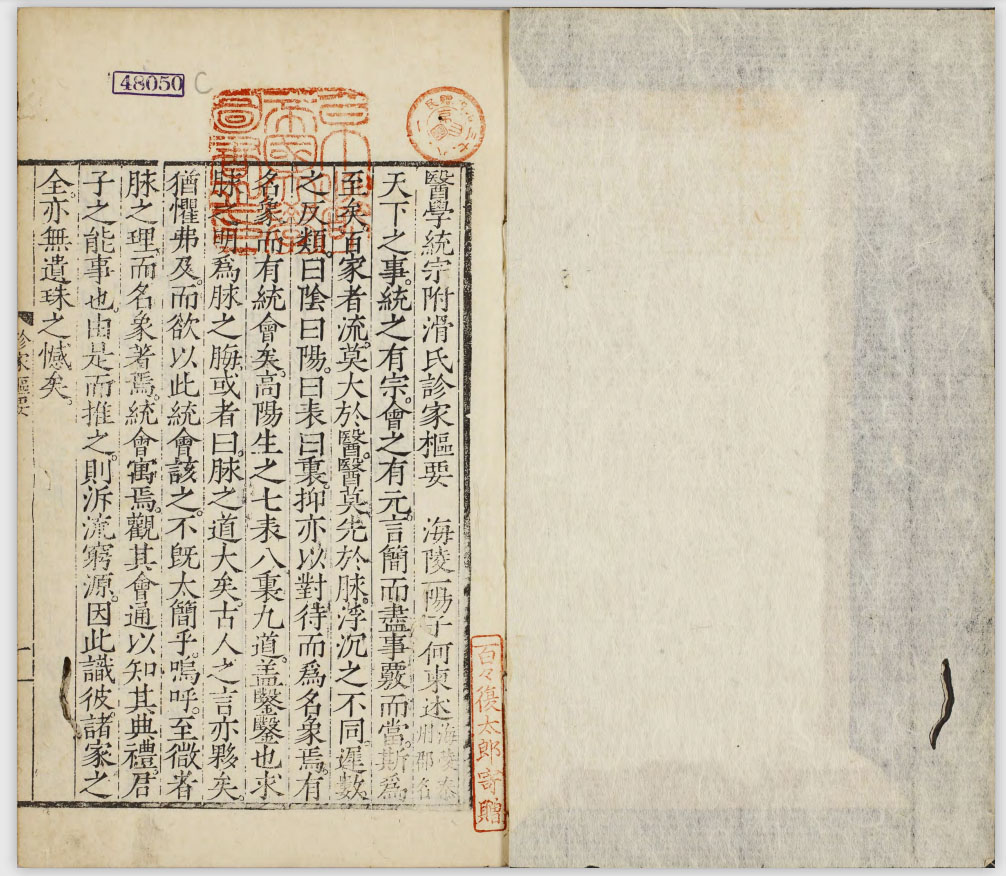 48050
C
百々復太郎寄贈
醫學統宗附滑氏診家樞要　海陵一陽子何柬述 海陵泰州郡名
天下之事。統之有宗。會之有元。言簡而盡事覈而當。斯爲
至矣。百家者流。莫大於醫。醫莫先於脉。浮沉之不同。遲數
之反類。曰隂曰陽。曰表曰裏。抑亦以對待而爲名象焉。有
名象而有統會矣。高陽生之七表八裏九道。盖鑿鑿也求
脉之明爲脉之晦。或者曰。脉之道大矣。古人之言亦夥矣。
猶懼弗及。而欲以此統會該之。不旣太簡乎。嗚呼。至微者
脉之理。而名象著焉。統會寓焉。觀其會通以知其典禮。君
子之能事也。由是而推之。則泝流窮源。因此識彼。諸家之
全。亦無遺珠之憾矣。
診家樞要
一